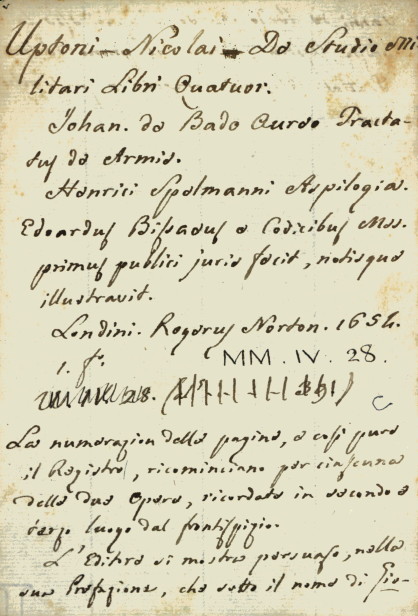 Uptoni - Nicolai - De Studio Mi-
litari Libri Quatuor.
Johan. de Bado Aureo Tracta-
tus de Armis.
Henrici Spelmanni Aspilogia.
Edoardus Bissaeus e Codicibus Mss.
primus publici juris fecit, notisque
illustravit.
Londini. Rogerus Norton. 1654.
i. f. MM. IV. 28.
La numerazion delle pagine, e così pure
il Registro, ricominciano per ciascuna
delle due Opere, ricordate in secondo e
terzo luogo dal frontispizio.
L'Editore si mostra persuaso, nella
sua Prefazione, che sotto il nome di Gio-